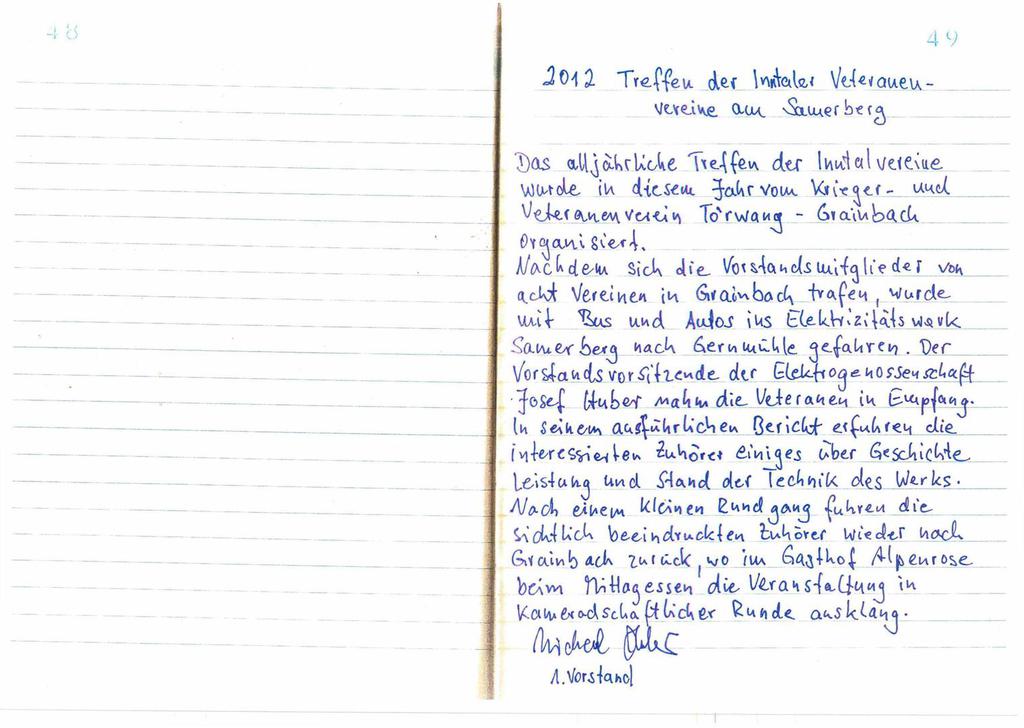 48
49
2012 Treffen der Inntaler Veteranen-
vereine am Samerberg
Das alljährliche Treffen der Inntalvereine
wurde in diesem Jahr vom Krieger- und
Veteranenverein Törwang - Grainbach
organisiert.
Nachdem sich die Vorstandsmitglieder von
acht Vereinen in Grainbach trafen, wurde
mit Bus und Autos ins Elektrizitätswerk
Samerberg nach Gernmühle gefahren. Der
Vorstandsvorsitzende der Elektrogenossenschaft
Josef Huber nahm die Veteranen in Empfang.
In seinem ausführlichen Bericht erfuhren die
interessierten Zuhörer einiges über Geschichte
Leistung und Stand der Technik des Werks.
Nach einem kleinen Rundgang fuhren die
sichtlich beeindruckten Zuhörer wieder nach
Grainbach zurück, wo im Gasthof Alpenrose
beim Mittagessen die Veranstaltung in
Kameradschaftlicher Runde ausklang.
Michael
1. Vorstand